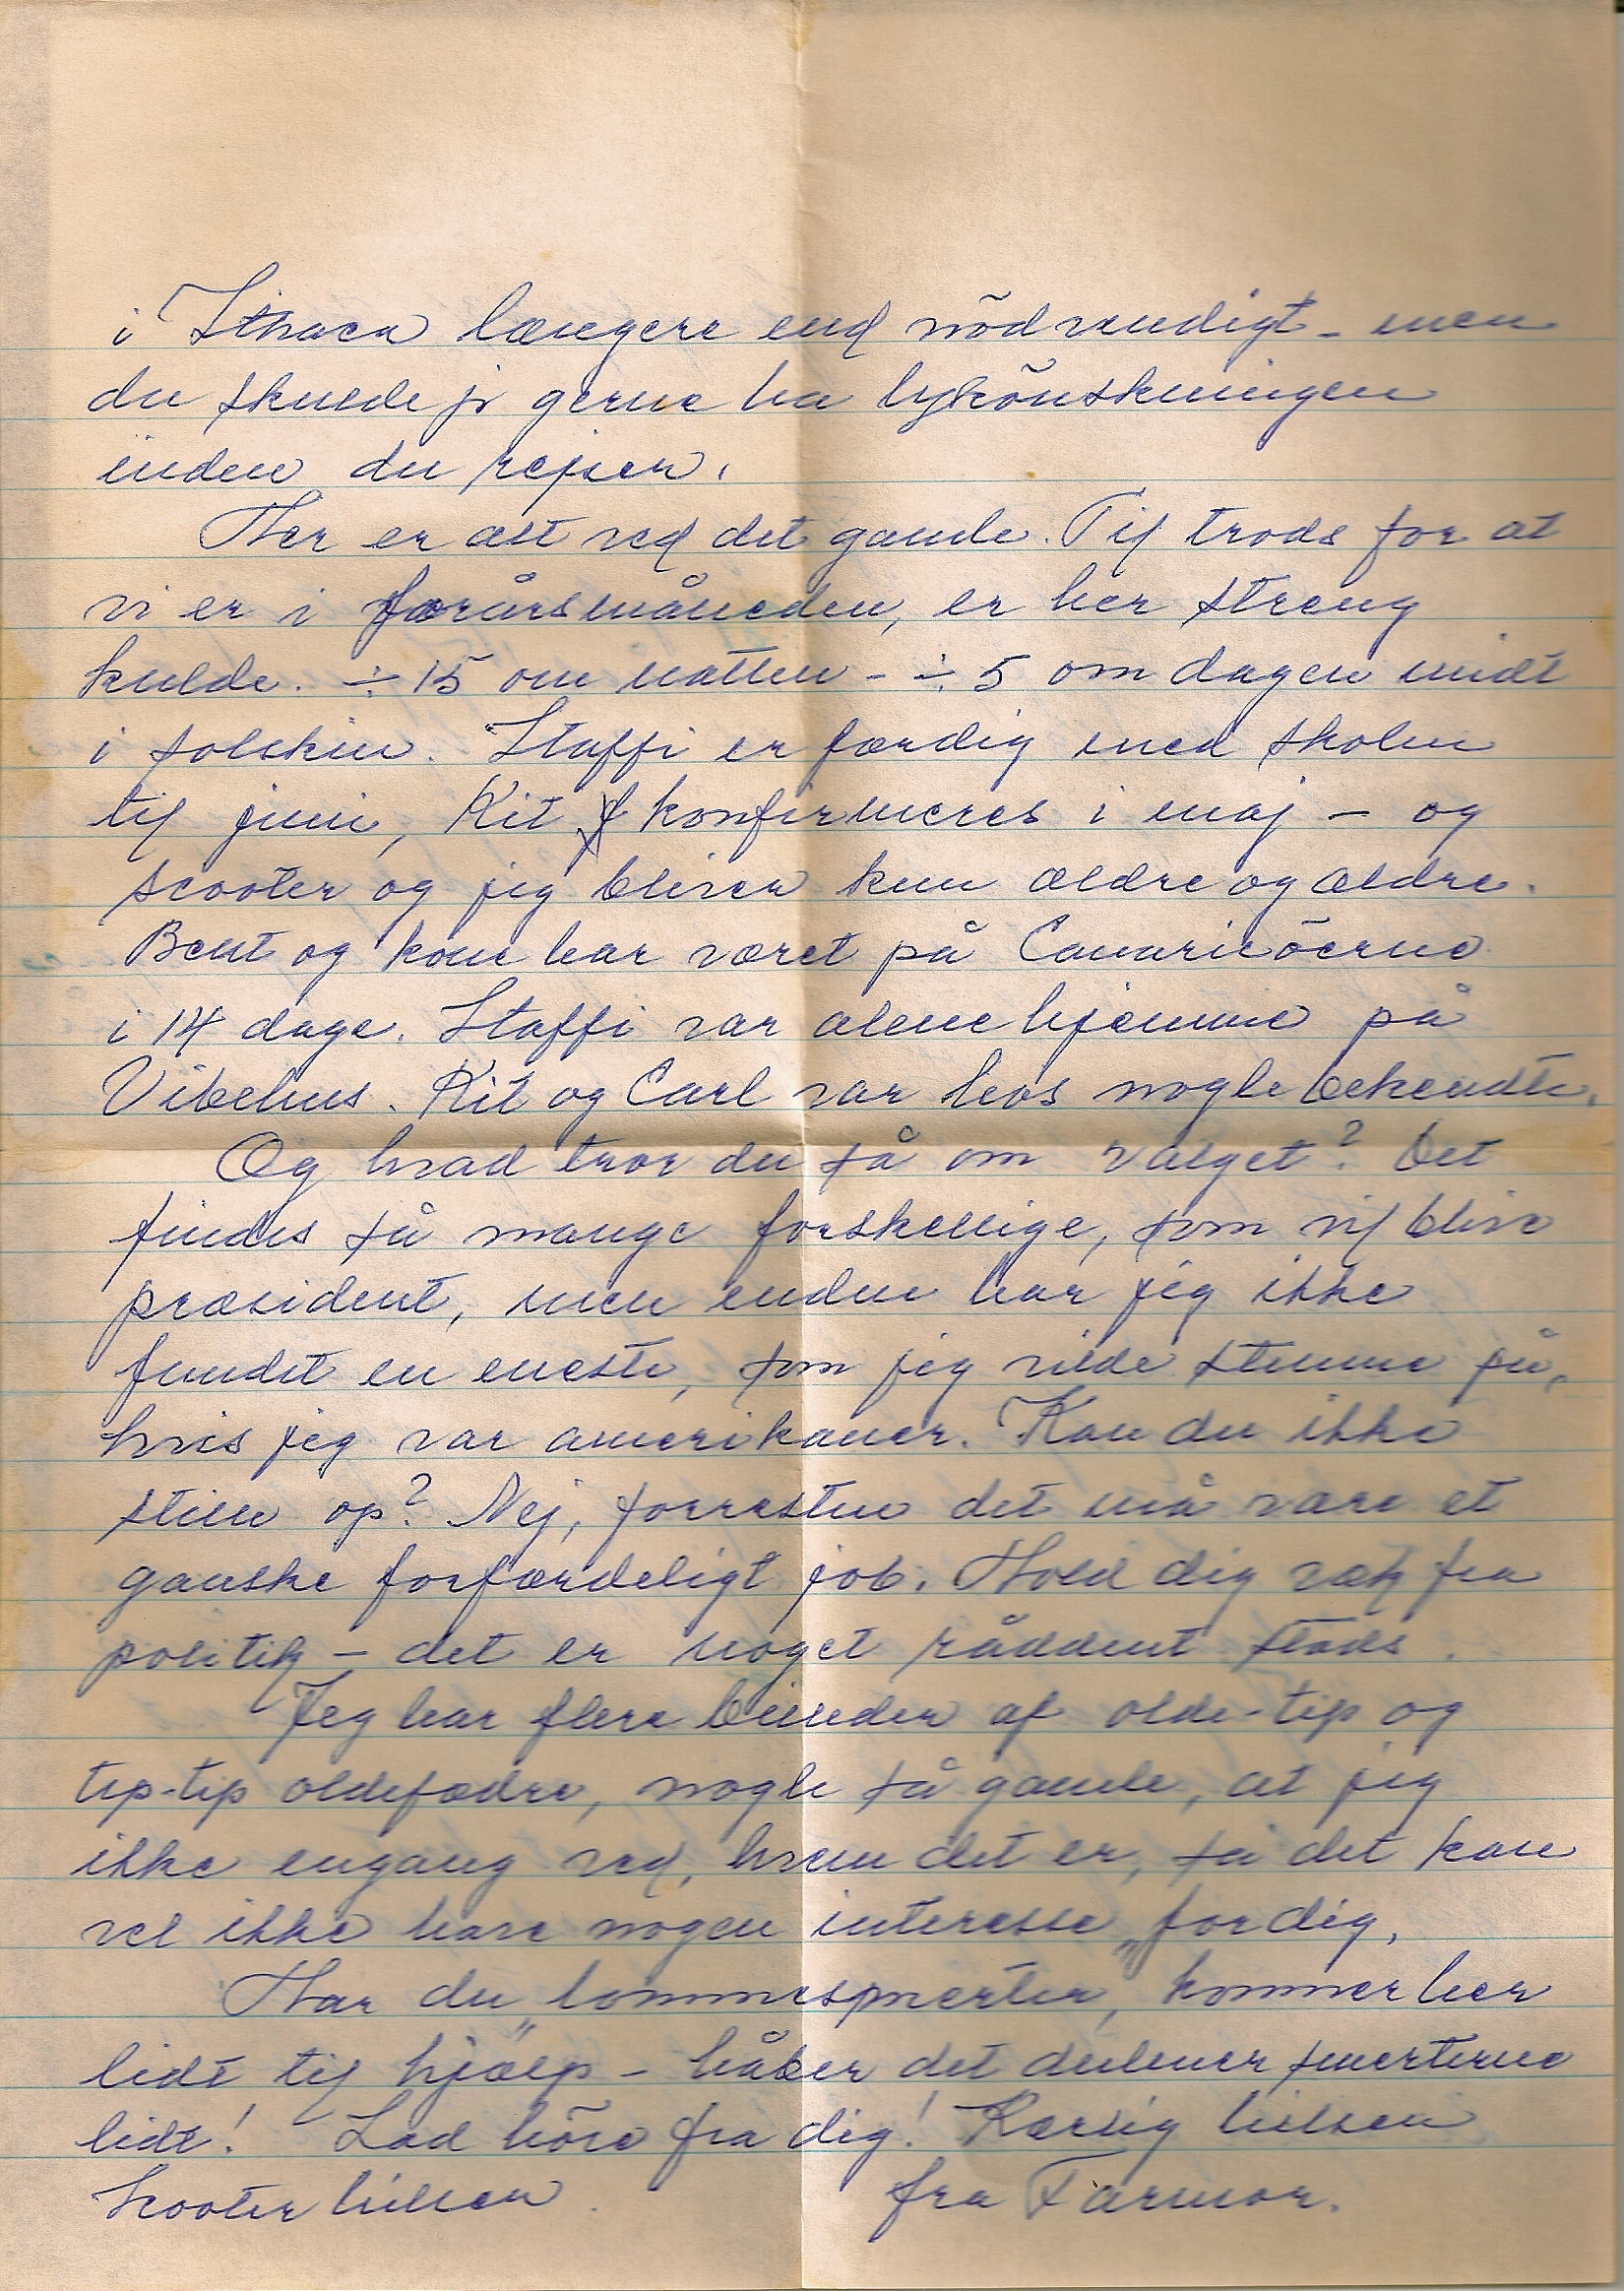 i Ithaca længere end nödvendigt - men
du skulde jo gerne ha lykönskningen
inden du rejser.
Her er alt ved det gamle. Til trods for at
vi er i forårsmåneden, er her streng
kulde. ÷ 15 om natten - ÷ 5 om dagen midt
i solskin. Staffi er færdig med skolen
til juni, Kit konfirmeres i maj - og
scooter og jeg bliver kun ældre og ældre.
Bent og kone har været på Canarieöerne
i 14 dage. Staffi var alene hjemme på
Vibehus. Kit og Carl var hos nogle bekendte.
Og hvad tror du så om valget? Det
findes så mange forskellige, som vil blive
præsident, men endnu har jeg ikke
fundet en eneste, som jeg vilde stemme på,
hvis jeg var amerikaner. Kan du ikke
stille op? Nej, forresten det må være et
ganske forfærdeligt job. Hold dig væk fra
politik - det er noget råddent stads.
Jeg har flere billeder af olde-tip og
tip-tip oldefædre, nogle så gamle, at jeg
ikke engang ved, hvem det er, så det kan
vel ikke have nogen interesse for dig.
Har du „lommesmerter", kommer her
lidt til hjælp - håber det dulmer smerterne
lidt! Lad höre fra dig! Kærlig hilsen
Scooter hilsen. fra Farmor.